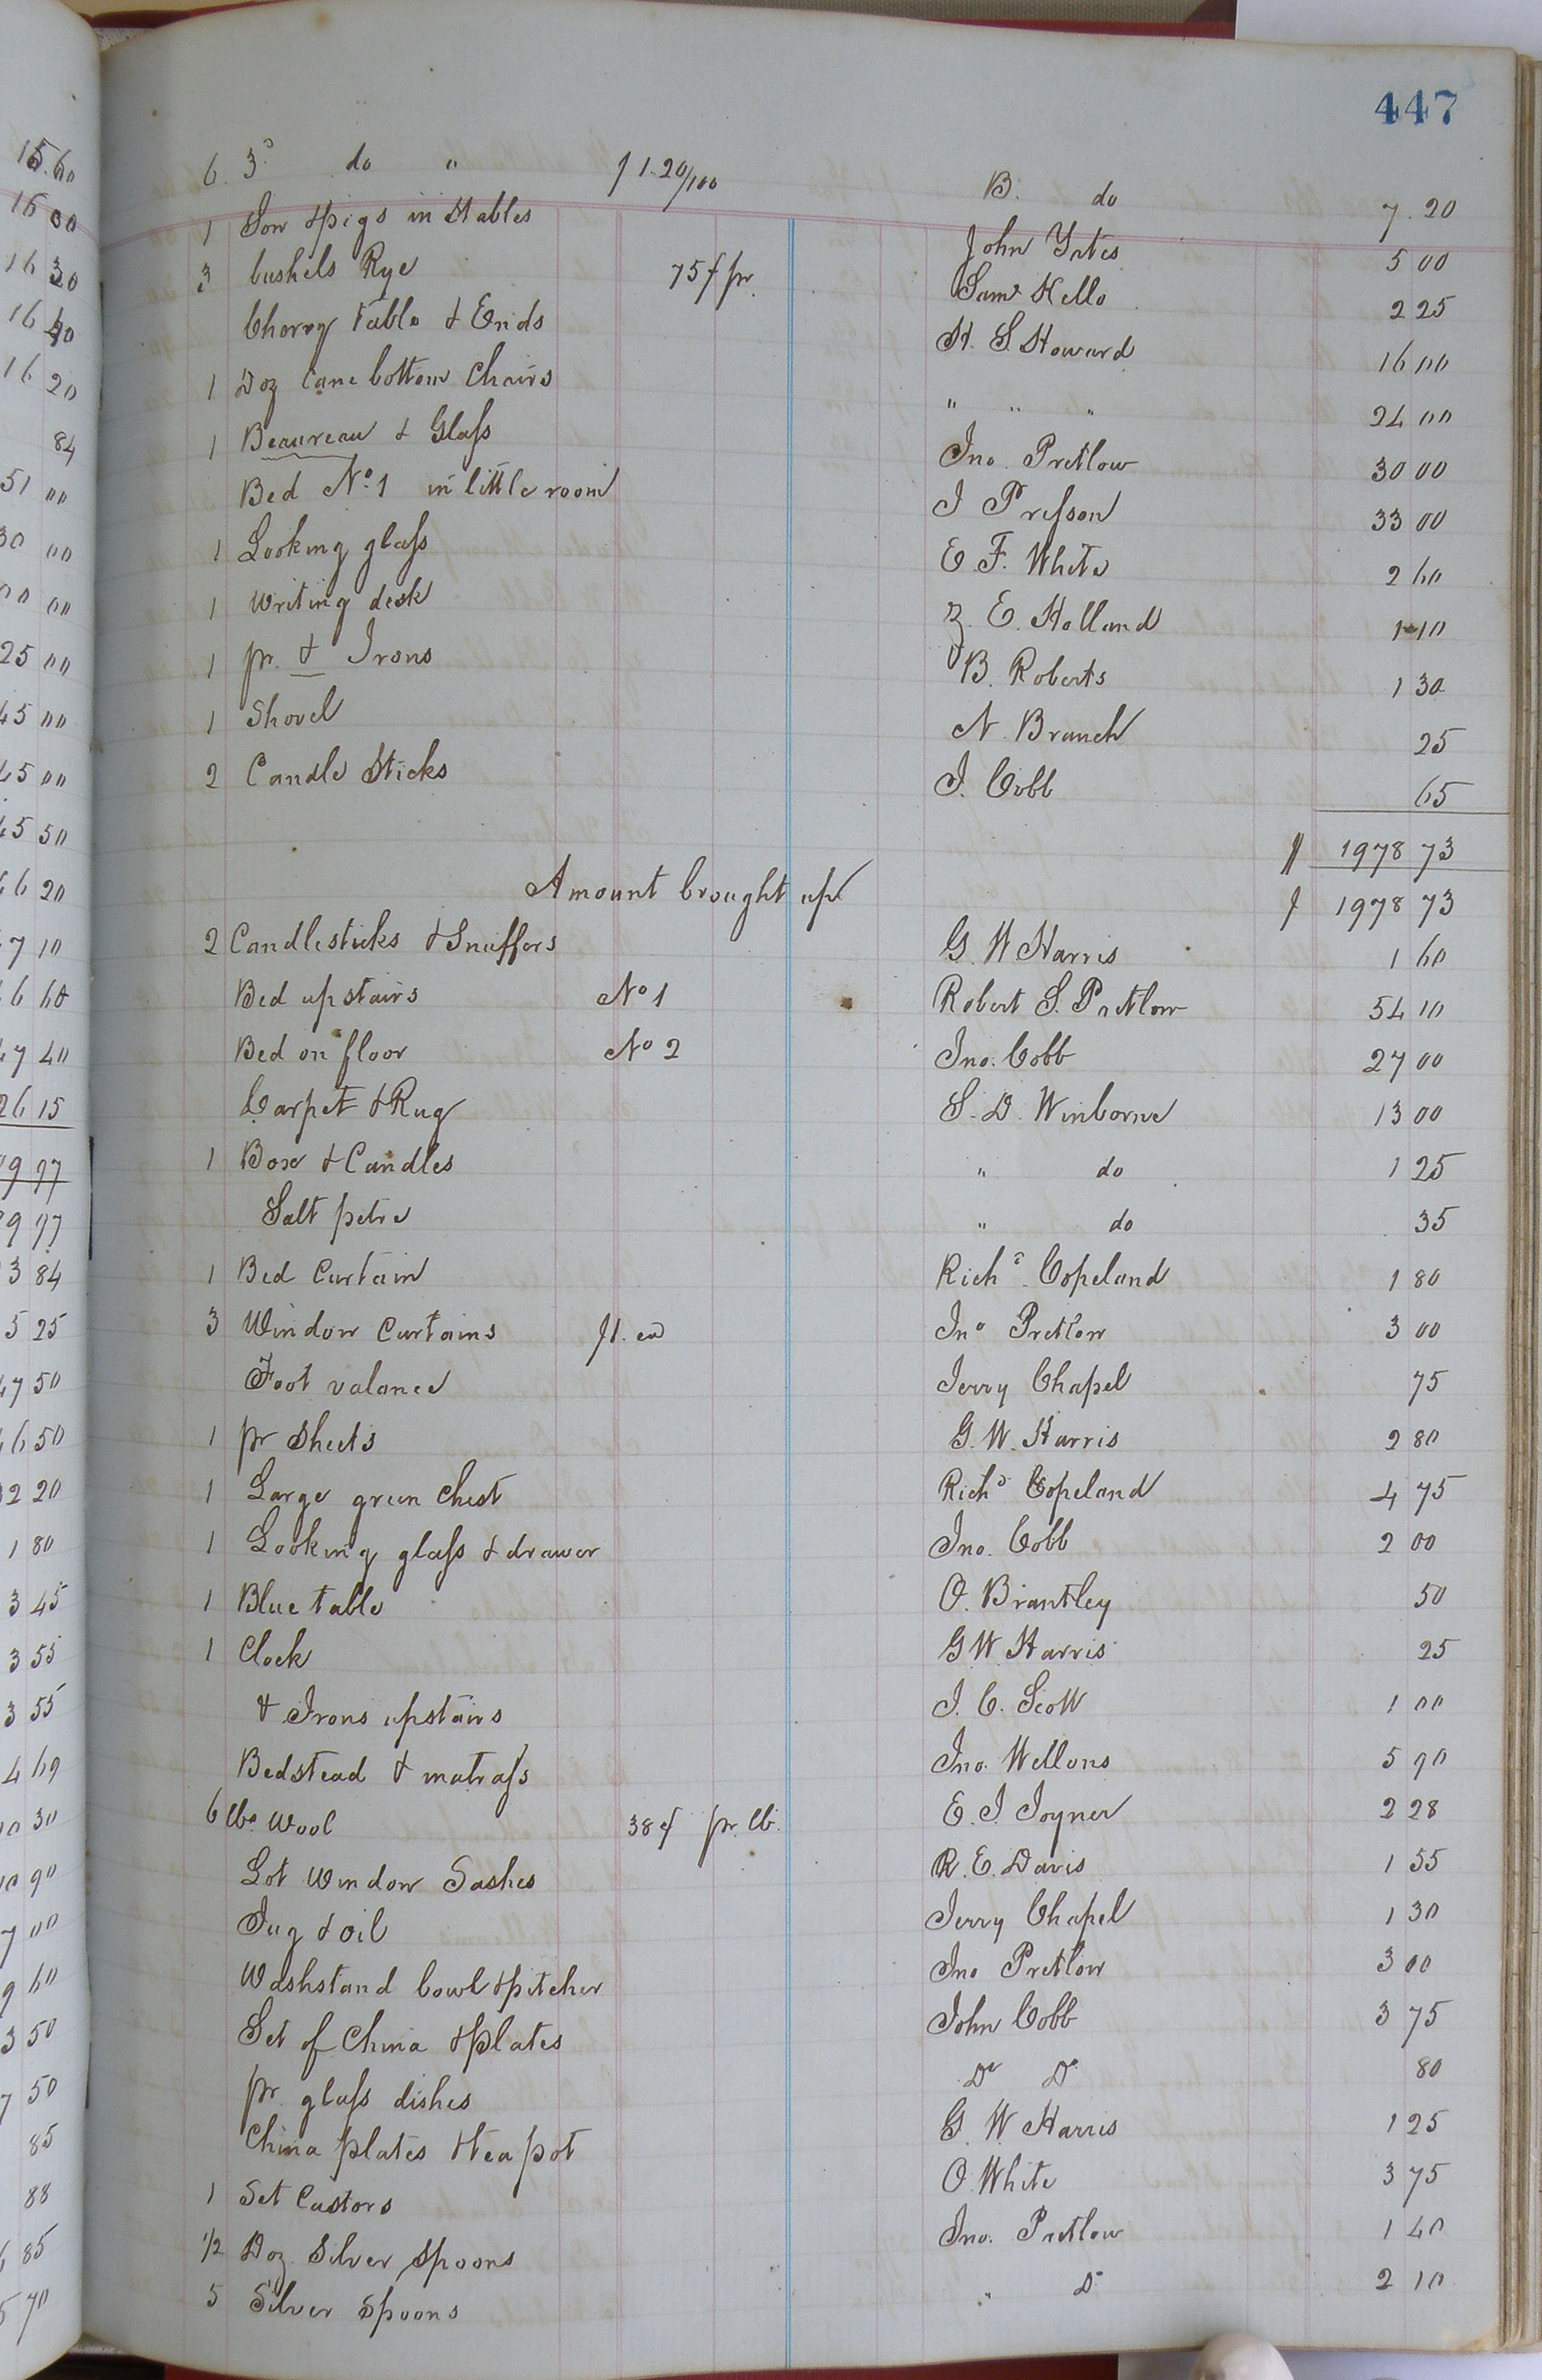 447
6. 3d do " $1.20/100 B. do 7.20
1 Sow & pigs in Stables John Yates 5 00
3 bushels Rye 75¢ pr. Saml Kello 2 25
Cherry Table & Ends H. S. Howard 16 00
1 Doz Cane bottom Chairs " " " 24 00
1 Beaureau & Glass Jno. Pretlow 30 00
Bed No. 1 in little room J Presson 33 00
1 Looking glass E. F. White 2 60
1 Writing desk Z. E. Holland 1 10
1 pr. & Irons B. Roberts 1 30
1 Shovel N. Branch 25
2 Candle Sticks J. Cobb 65
$ 1978 73
Amount brought up $ 1978 73
2 Candlesticks & Snuffers G. W Harris 1 60
Bed upstairs No 1 Robert S. Pretlow 54 10
Bed on floor No 2 Jno. Cobb 27 00
Carpet & Rug S. D. Winborne 13 00
1 Box & Candles " do 1 25
Salt petre " do 35
1 Bed Curtain Richd. Copeland 1 80
3 Window Curtains $1. ea Jno Pretlow 3 00
Foot valance Jerry Chapel 75
1 pr Sheets G. W. Harris 2 80
1 Large green Chest Richd Copeland 4 75
1 Looking glass & drawer Jno. Cobb 2 00
1 Blue table O. Brantley 50
1 Clock G W. Harris 25
& Irons upstairs J. C. Scott 1 00
Bedstead & matrass Jno. Wellons 5 90
6 lbs. Wool 38¢ pr. lb. E. J. Joyner 2 28
Lot Window Sashes R. E. Davis 1 55
Jug & oil Jerry Chapel 1 30
Washstand bowl & pitcher Jno Pretlow 3 00
Set of China & plates John Cobb 3 75
pr. glass dishes Do Do 80
China plates & tea pot G. W Harris 1 25
1 Set Castors O. White 3 75
1/2 Doz Silver Spoons Jno. Pretlow 1 40
5 Silver Spoons " Do 2 10